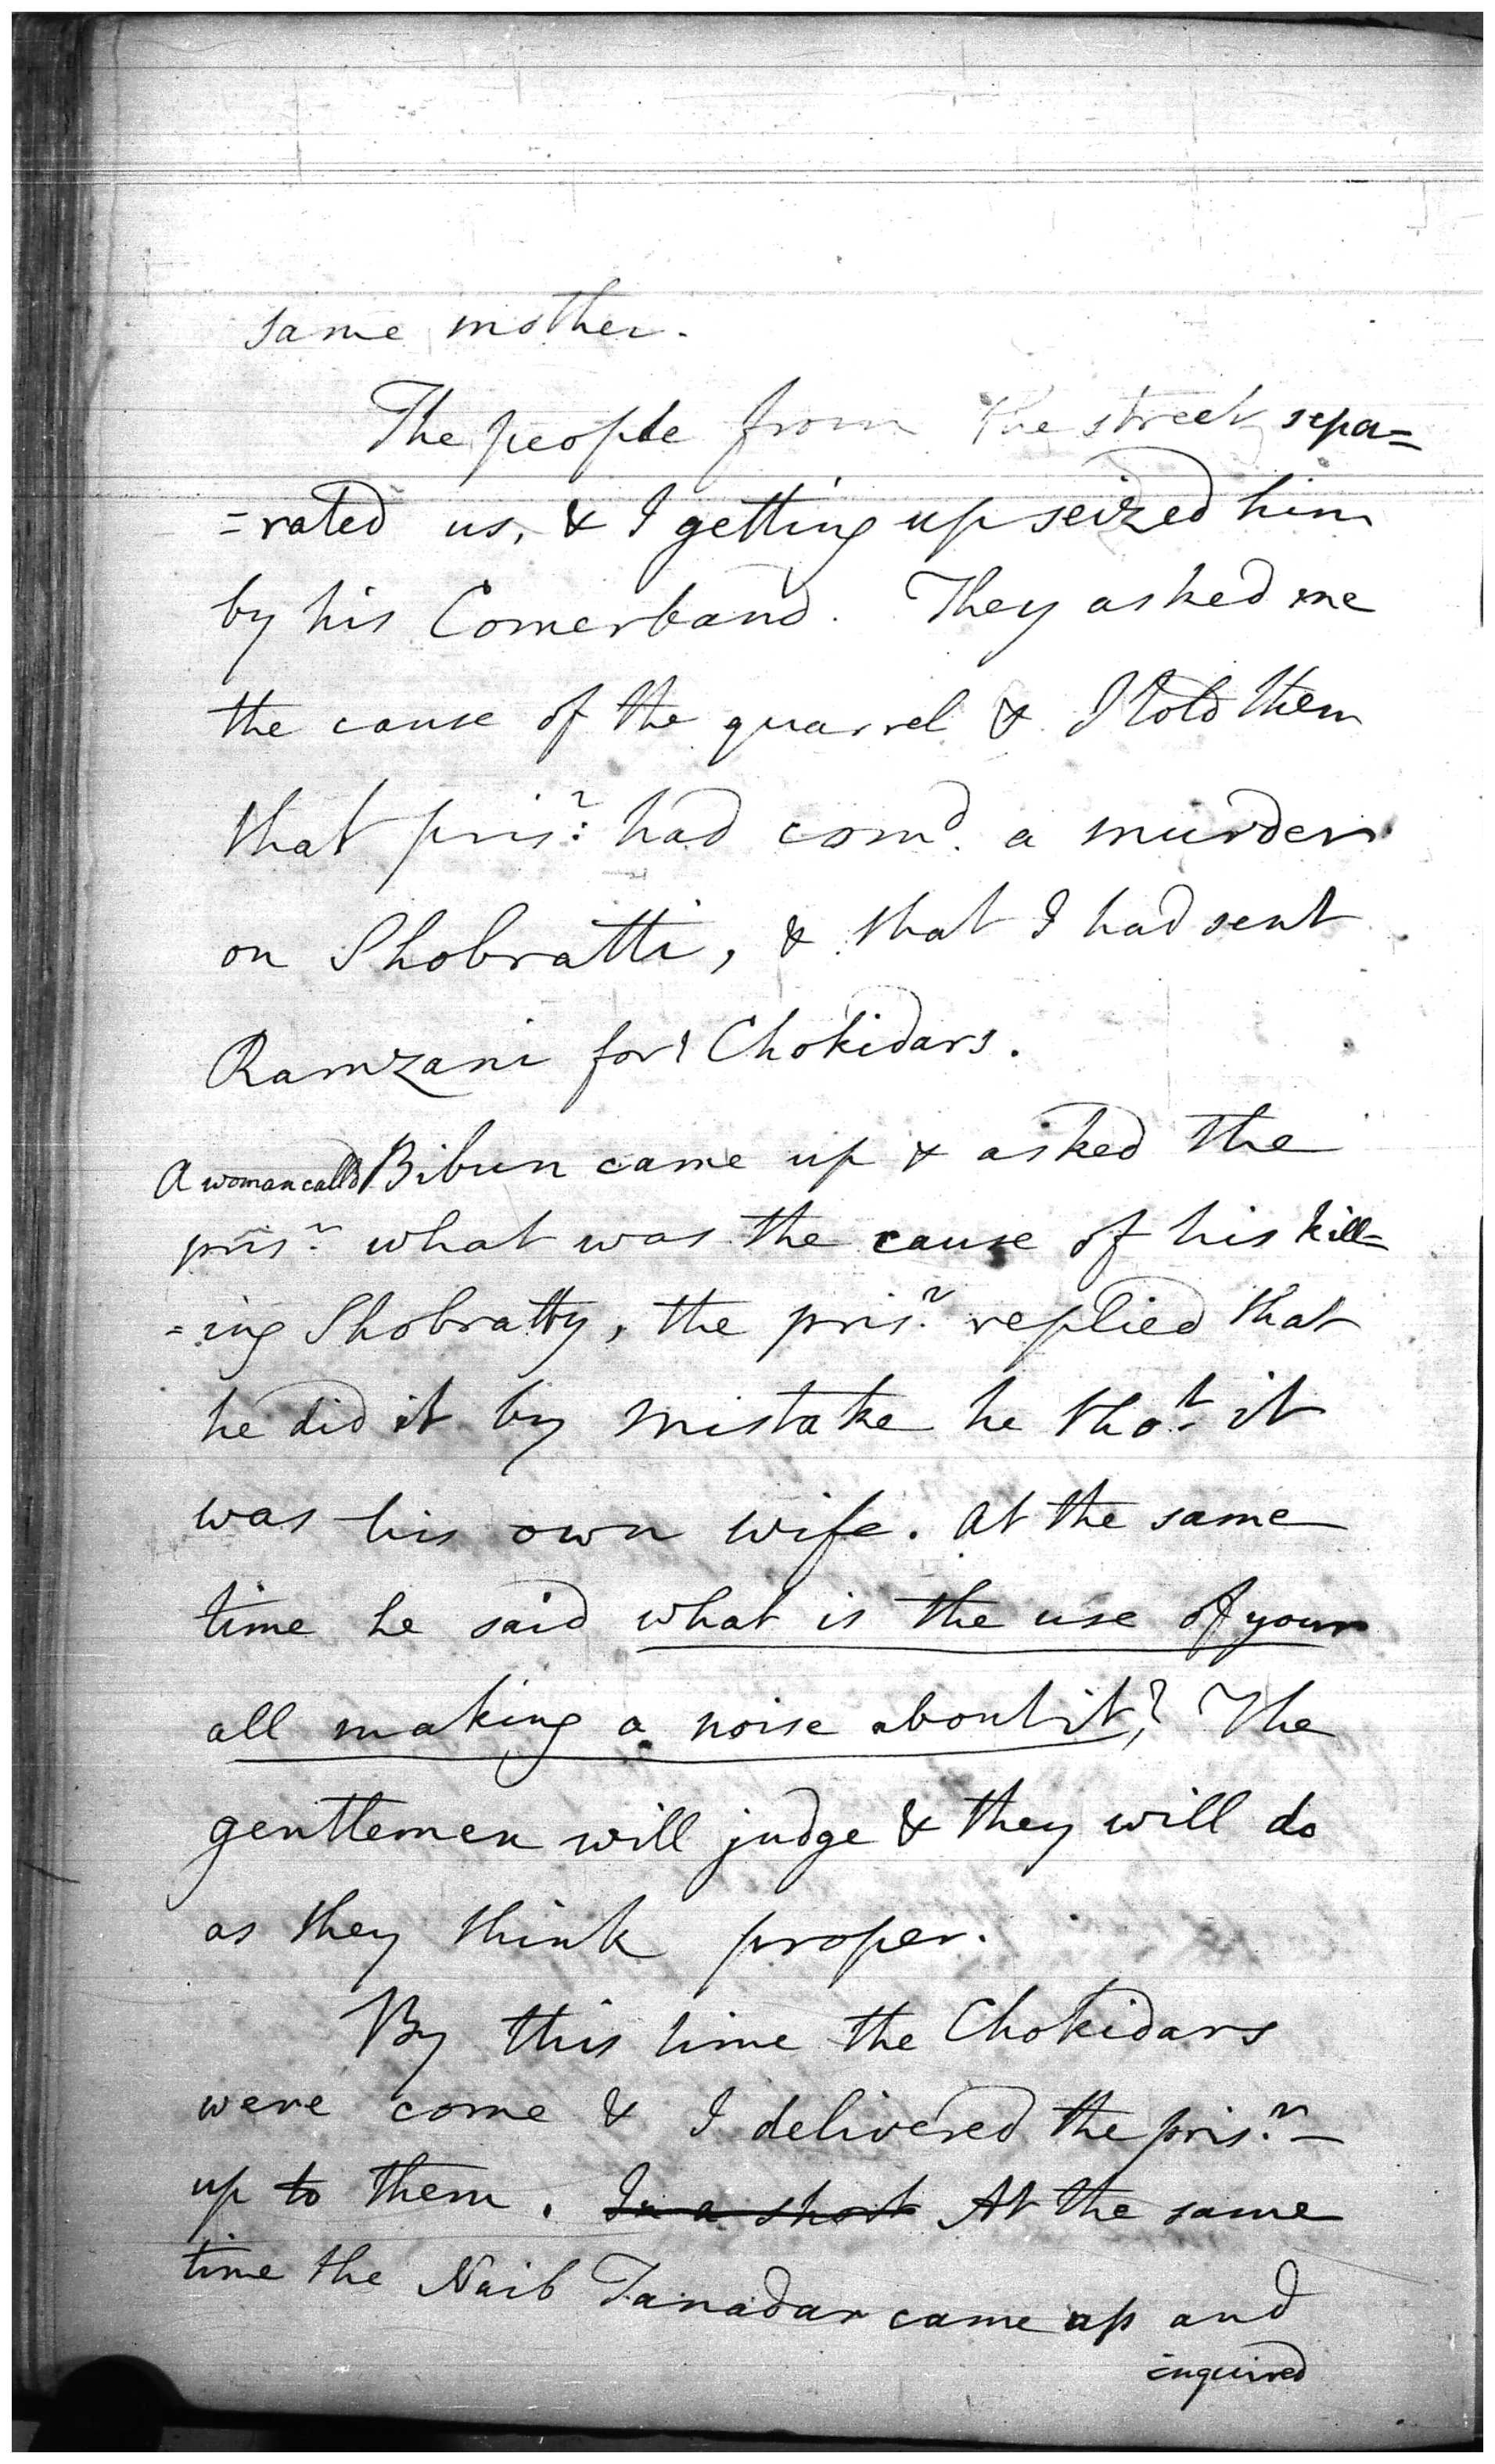 same mother.
The people from the street sepa=
=rated us, & I getting up seized him
by his Comerband. They asked me
the cause of the quarrel & I told them
that prisr: had comd. a murder
on Shobratti, & that I had sent
Ramzani for Chokidars.
A woman calld Bibun came up & asked the
prisr. what was the cause of his kill=
=ing Shobratty, the prisr. replied that
he did it by mistake he thot. it
was his own wife. At the same
time he said what is the use of your
all making a noise about it? The
gentlemen will judge & they will do
as they think proper.
By this time the Chokidars
were come & I delivered the prisr. –
up to them. In a short At the same
time the Naib Tanadar came up and
inquired